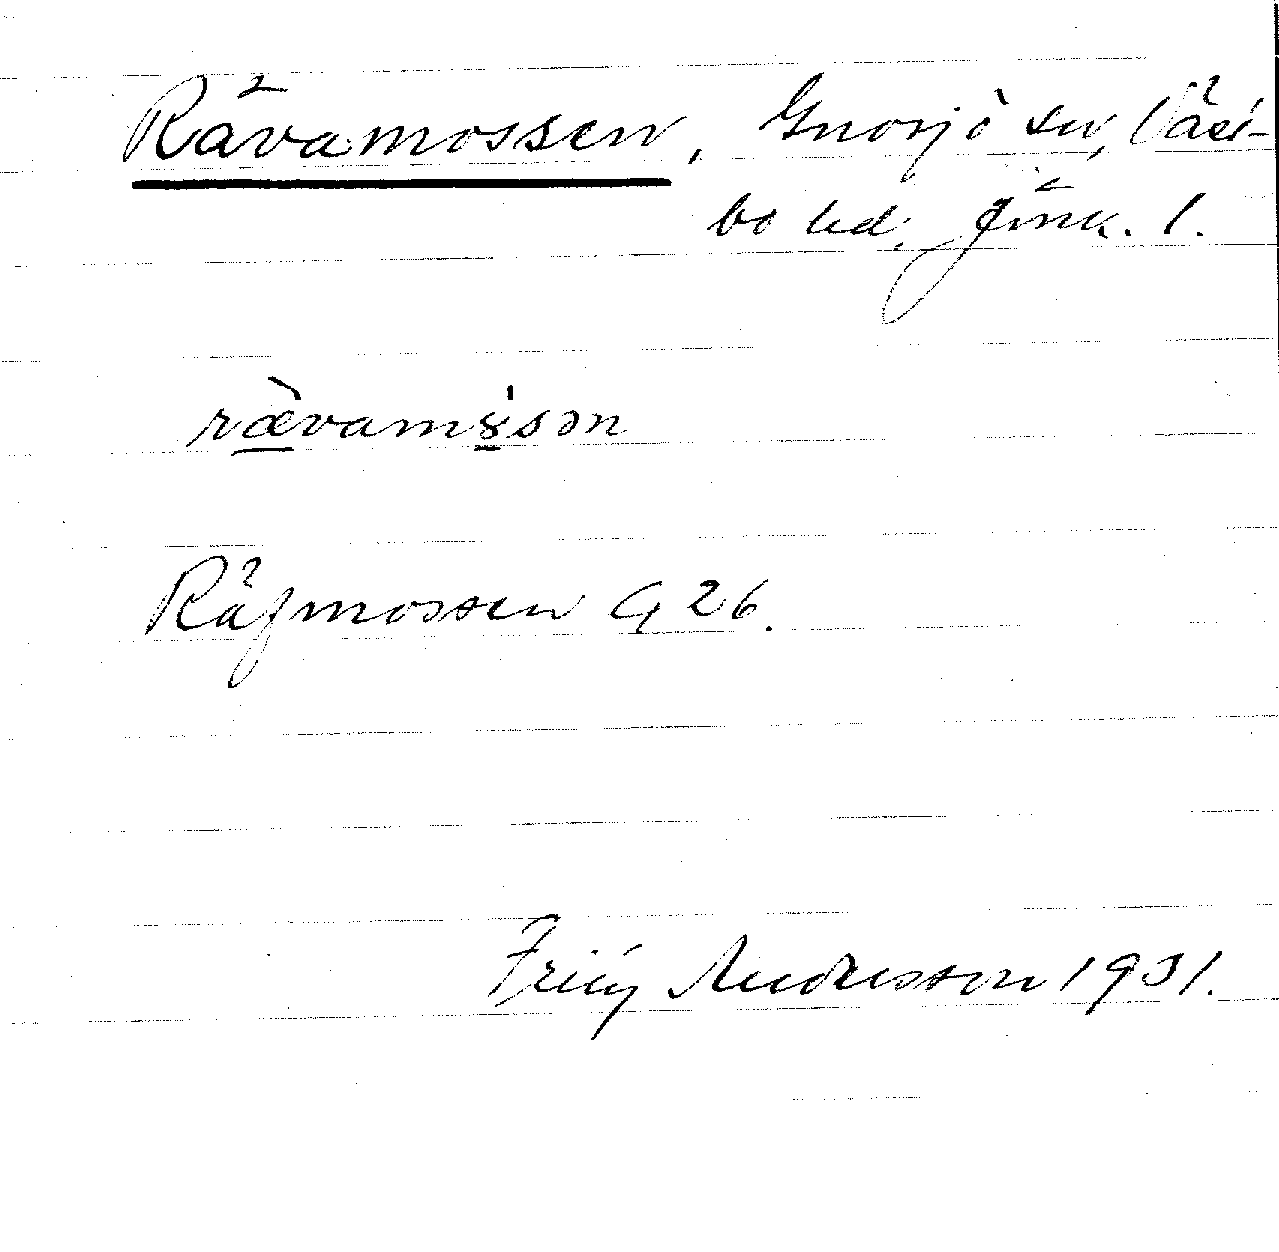 Rävamossen, Gnosjö sn, Väst-
bo hd, Jönk. l.
rævamȣsən
Räfmossen G 26.
Frity Andersson 1931.